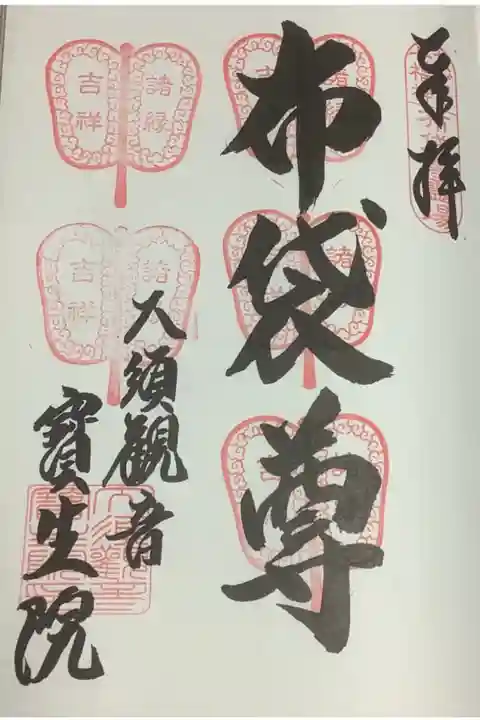 奉拝
布袋尊
大須観音
寳生院
諸縁
吉祥
諸
吉祥
諸